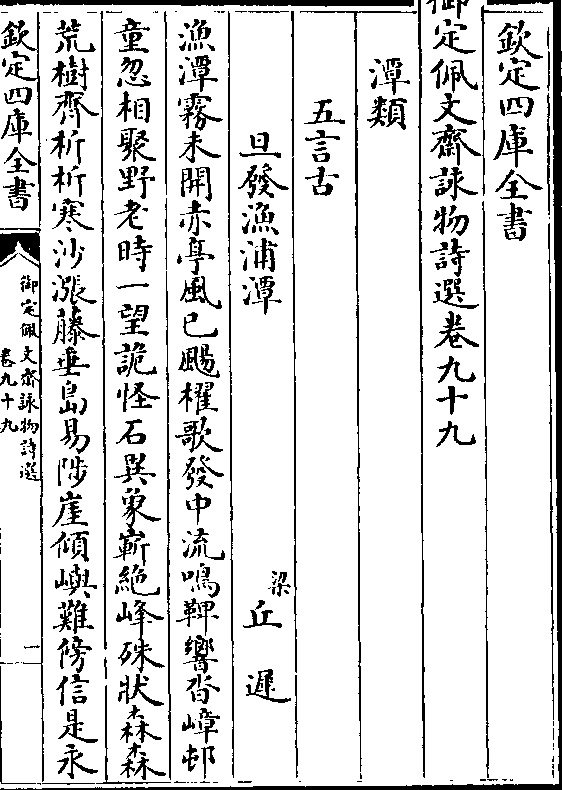 欽定四庫全書
御定佩文齋詠物詩選卷九十九
潭類
五言古
旦發漁浦潭　梁　丘遲
漁潭霧未開赤亭風已颺櫂歌發中流鳴鞞響沓嶂邨
童忽相聚野老時一望詭怪石異象嶄絶峰殊狀森森
荒樹齊析析寒沙漲藤垂島易陟崖傾嶼難傍信是永
欽定四庫全書
御定佩文齋詠物詩選
卷九十九
一